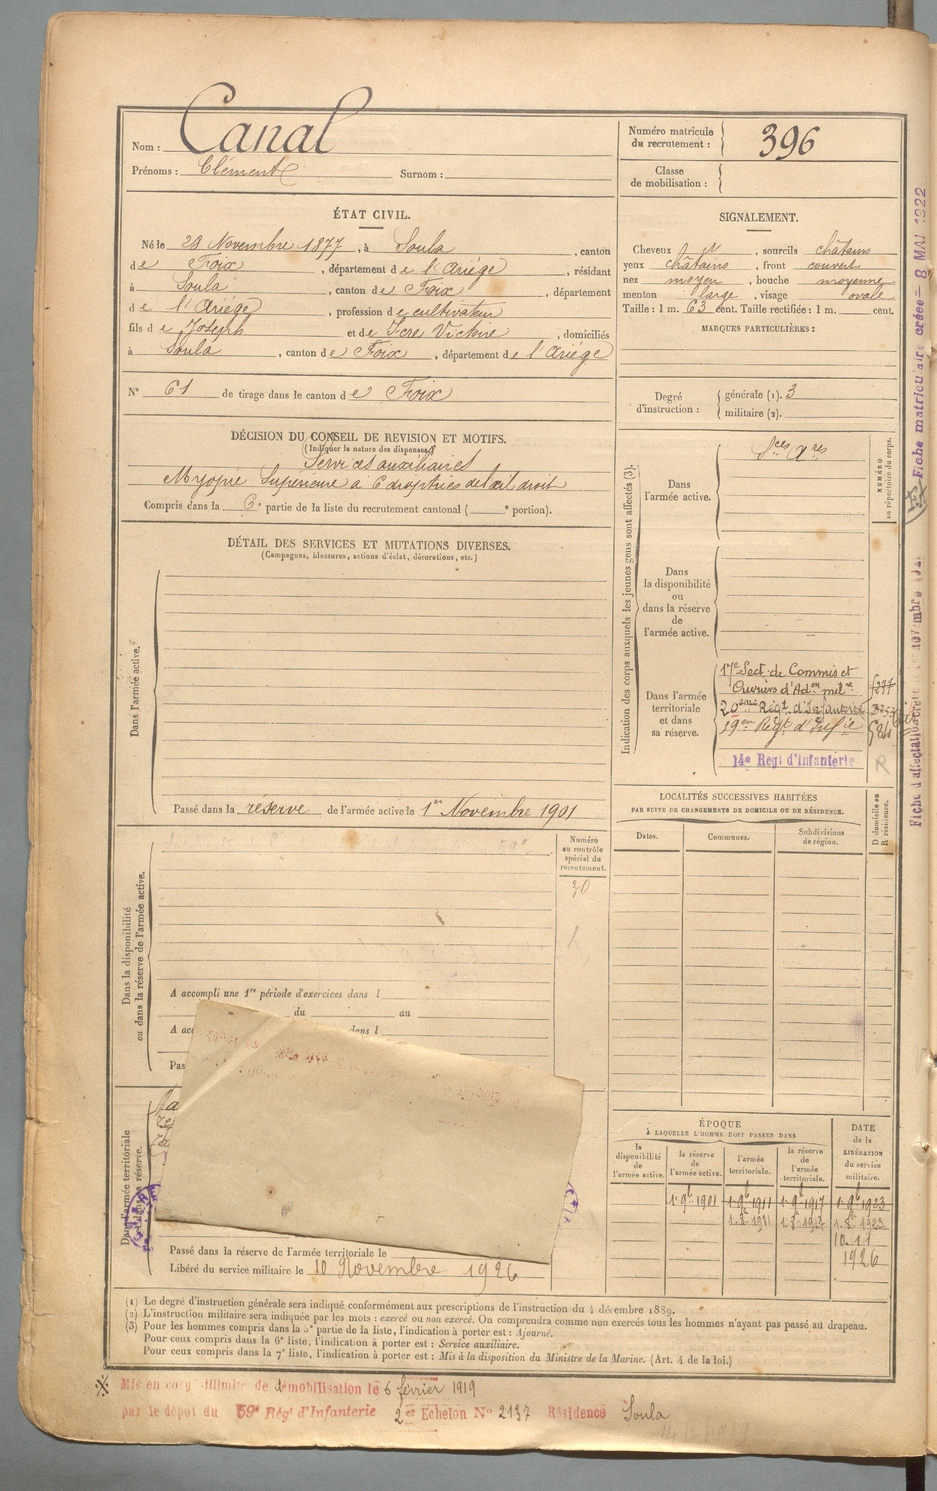 Nom : Canal
Prénoms : Clément Surnom :
Numéro matricule du recrutement : 396
Classe de mobilisation :
ÉTAT CIVIL.
Né le 23 Novembre 1877, à Soula, canton
de Foix, département de l'Ariège, résidant
à Soula, canton de Foix, département
de l'Ariège, profession de cultivateur
fils de Joseph et de Victoire, domiciliés
à Soula, canton de Foix, département de l'Ariège
N° 61 de tirage dans le canton de Foix
SIGNALEMENT.
Cheveux, sourcils châtains
yeux châtains, front couvert
nez moyen, bouche moyenne
menton large, visage ovale
Taille : 1 m. 63 cent. Taille rectifiée : 1 m. cent.
MARQUES PARTICULIÈRES :
Degré d'instruction : générale (1). 3
militaire (2).
DÉCISION DU CONSEIL DE REVISION ET MOTIFS.
(Indiquer la nature des dispenses.)
Services auxiliaires
Myopie Supérieure à 6 dioptries de l'œil droit
Compris dans la 6e partie de la liste du recrutement cantonal ( e portion).
DÉTAIL DES SERVICES ET MUTATIONS DIVERSES.
(Campagnes, blessures, actions d'éclat, décorations, etc.)
Dans l'armée active.
Passé dans la réserve de l'armée active le 1er Novembre 1901
Indication des corps auxquels les jeunes gens sont affectés (3).
Dans l'armée active.
Sces Xres
NUMÉRO au répertoire du corps.
Dans la disponibilité ou dans la réserve de l'armée active.
Dans l'armée territoriale et dans sa réserve.
17e Sect. de Commis et
Ouvriers d'Adon milre
20ème Régt d'Infanterie
Régt d'Infie
14e Regt d'Infanterie
R
LOCALITÉS SUCCESSIVES HABITÉES
PAR SUITE DE CHANGEMENTS DE DOMICILE OU DE RÉSIDENCE.
Dates. Communes. Subdivisions de région. D domicile ou R résidence.
Dans la disponibilité ou dans la réserve de l'armée active.
Numéro au contrôle spécial du recrutement.
A accompli une 1re période d'exercices dans l
du au
A acc dans l
Pas
Dans l'armée territoriale
réserve.
Passé dans la réserve de l'armée territoriale le
Libéré du service militaire le 10 Novembre 1926
ÉPOQUE
À LAQUELLE L'HOMME DOIT PASSER DANS
la disponibilité de l'armée active. la réserve de l'armée active. l'armée territoriale. la réserve de l'armée territoriale. DATE de la LIBÉRATION du service militaire.
1.9b 1901 1.9b 1911 1.9b 1917 1.9b 1923
10.11
1926
(1) Le degré d'instruction générale sera indiqué conformément aux prescriptions de l'instruction du 4 décembre 1889.
(2) L'instruction militaire sera indiquée par les mots : exercé ou non exercé. On comprendra comme non exercés tous les hommes n'ayant pas passé au drapeau.
(3) Pour les hommes compris dans la 5e partie de la liste, l'indication à porter est : Ajourné.
Pour ceux compris dans la 6e liste, l'indication à porter est : Service auxiliaire.
Pour ceux compris dans la 7e liste, l'indication à porter est : Mis à la disposition du Ministre de la Marine. (Art. 4 de la loi.)
Mis en illimité de démobilisation le 6 février 1919
par le dépot du 59e Régt d'Infanterie 2er Echelon No 2137 Résidence Soula
Fiche matriculaire créée - 8 MAI 1922
Fiche d'affectation